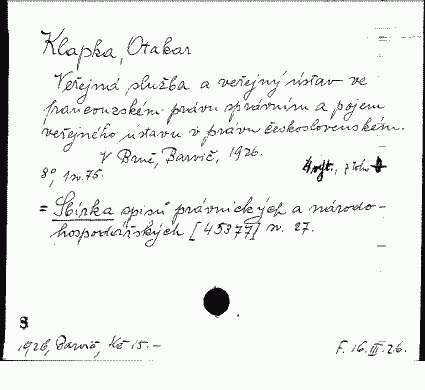 Klapka, Otakar
Veřejná služba a veřejný ústav ve
francouzském právu správním a pojem
veřejného ústavu v právu československém.
V Brně, Barvič, 1926.
8°, 175.
= Sbírka spisů právnických a národo-
hospodářských [45377] n. 27.
8
1926, Barvič, Kč 15.-
F. 16.III.26.